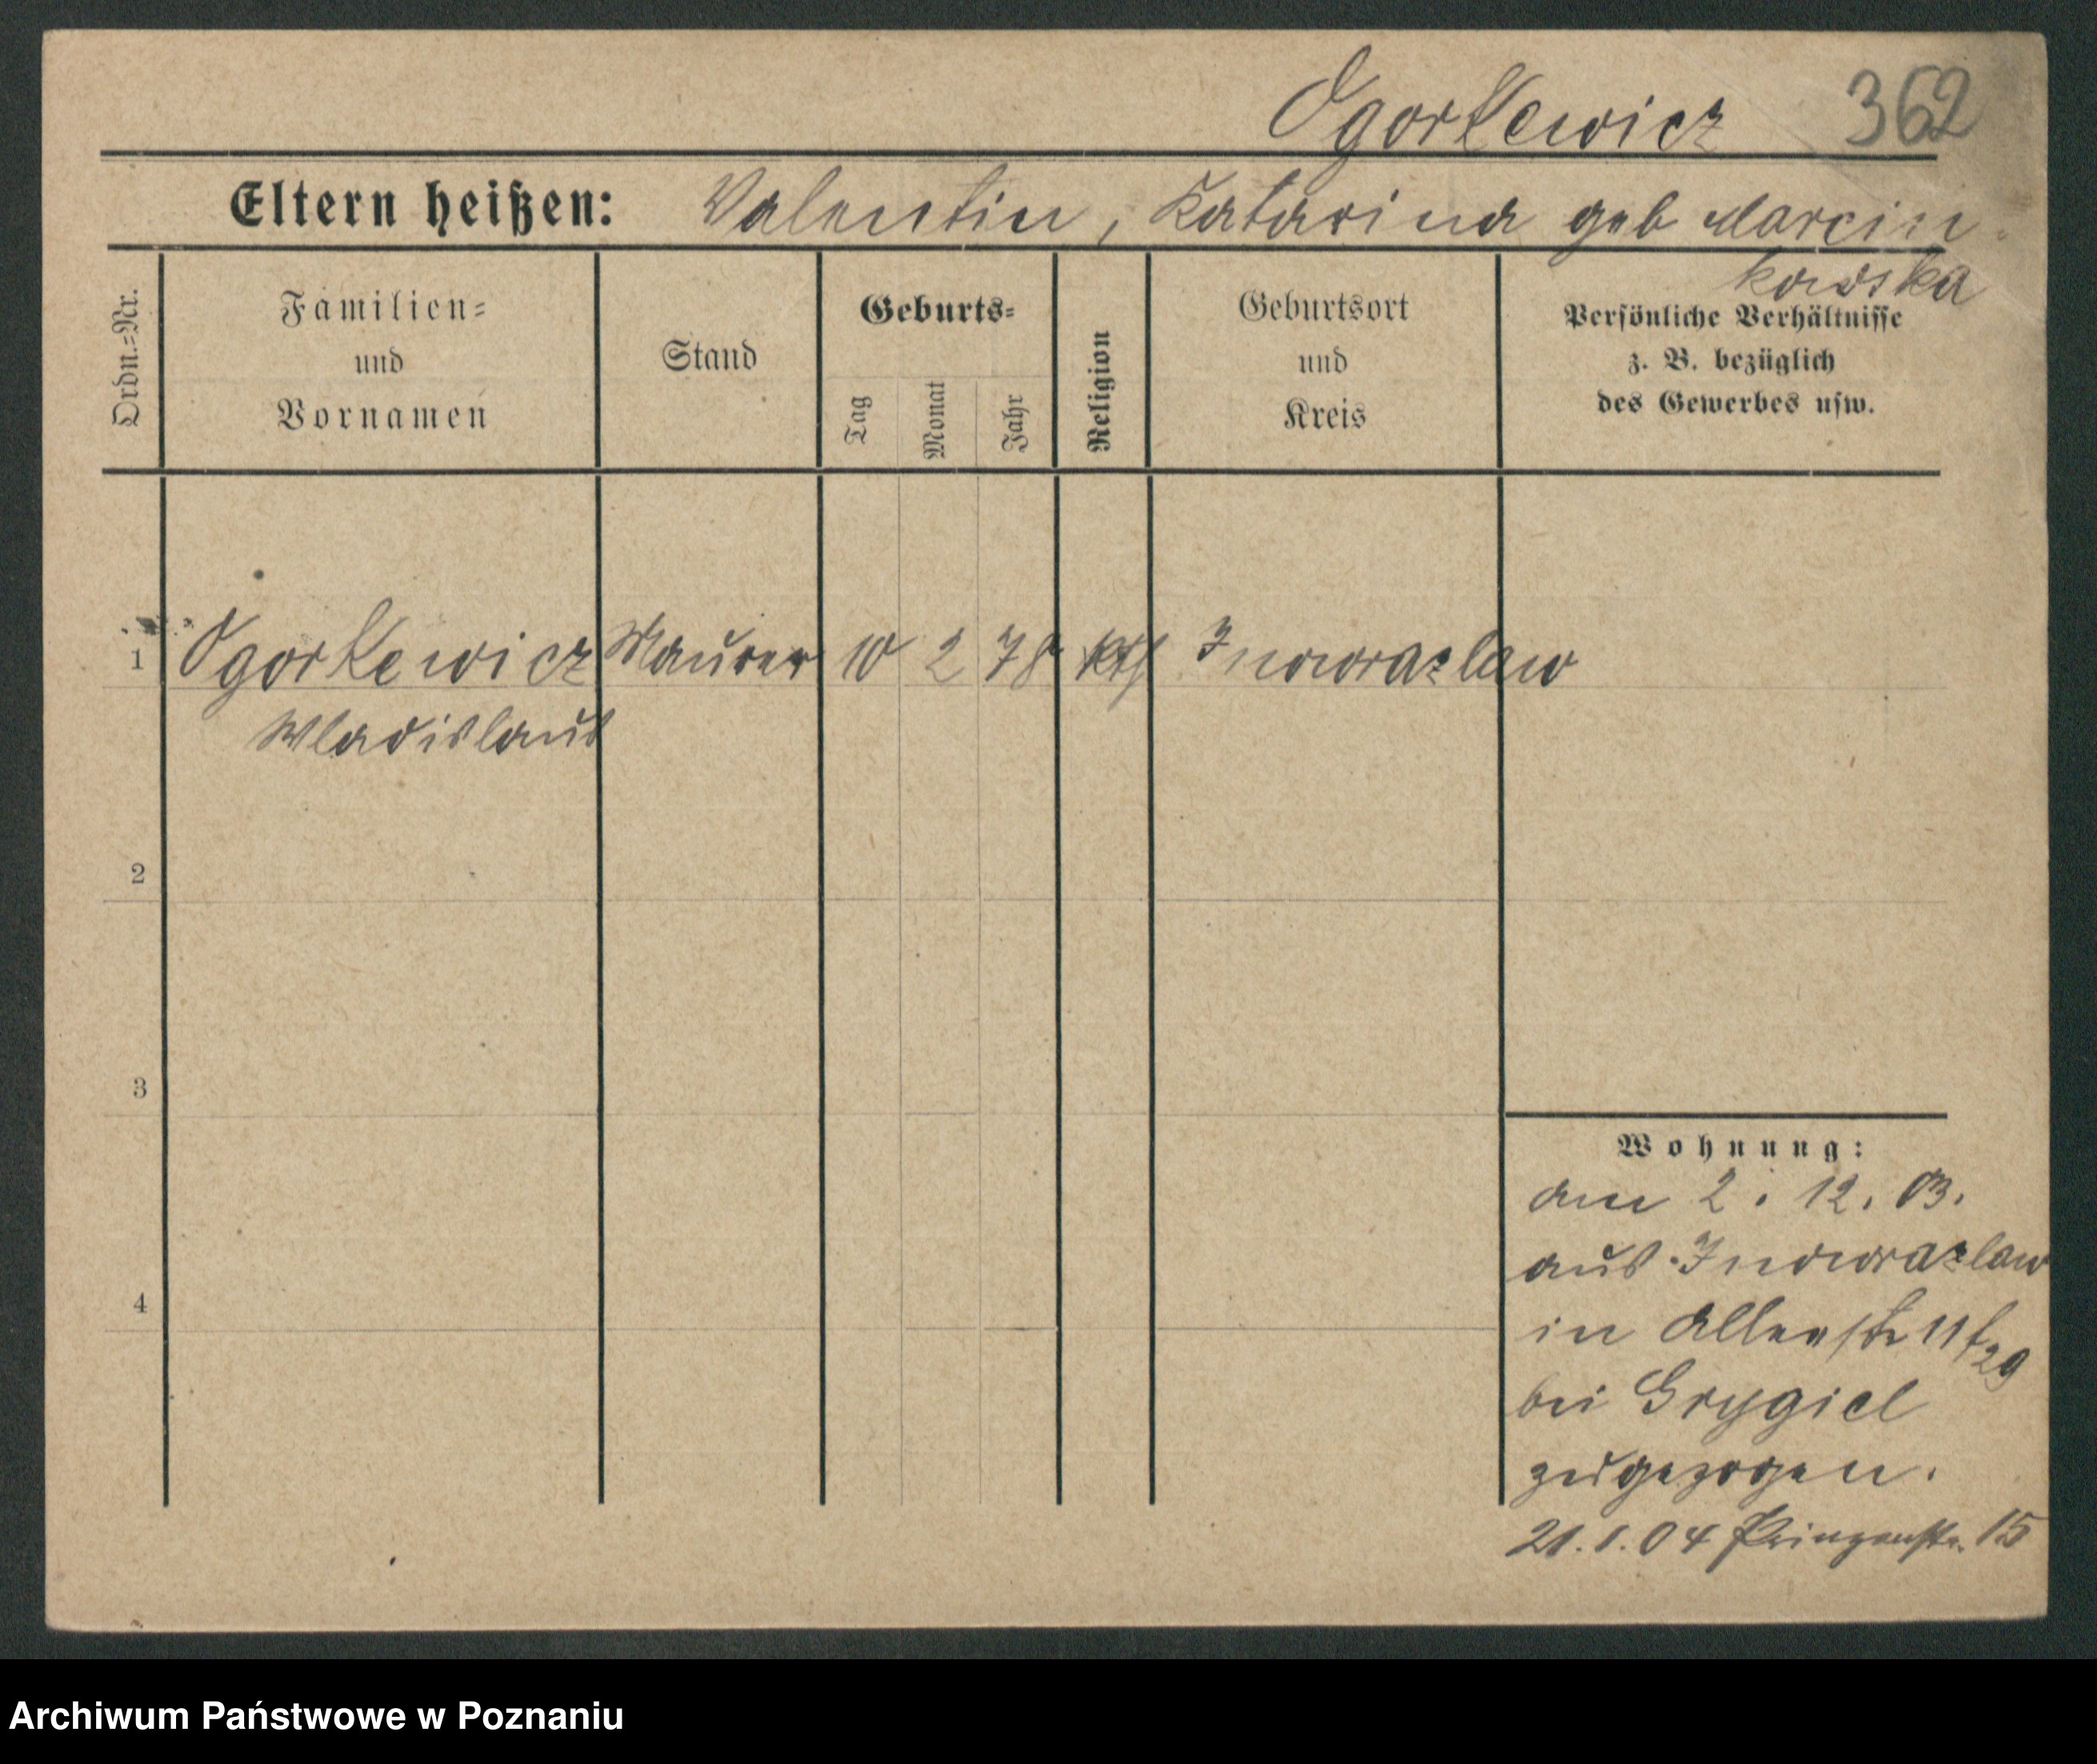 Ogorkewicz 362
Eltern heißen: Valentin, Katarina geb Marcin-
kowska
Ordn.=Nr.
Familien=
und
Vornamen
Stand
Geburts=
Tag
Monat
Jahr
Religion
Geburtsort
und
Kreis
Persönliche Verhältnisse
z. B. bezüglich
des Gewerbes usw.
1 Ogorkewicz Maurer 10 2 78 kth Inowrazlaw
Wladislaus
2
3
4
Wohnung:
am 2. 12. 03.
aus Inowrazlaw
in 11
bei Grygiel
zugezogen.
21.1.04 Prinzenstr. 15
Archiwum Państwowe w Poznaniu